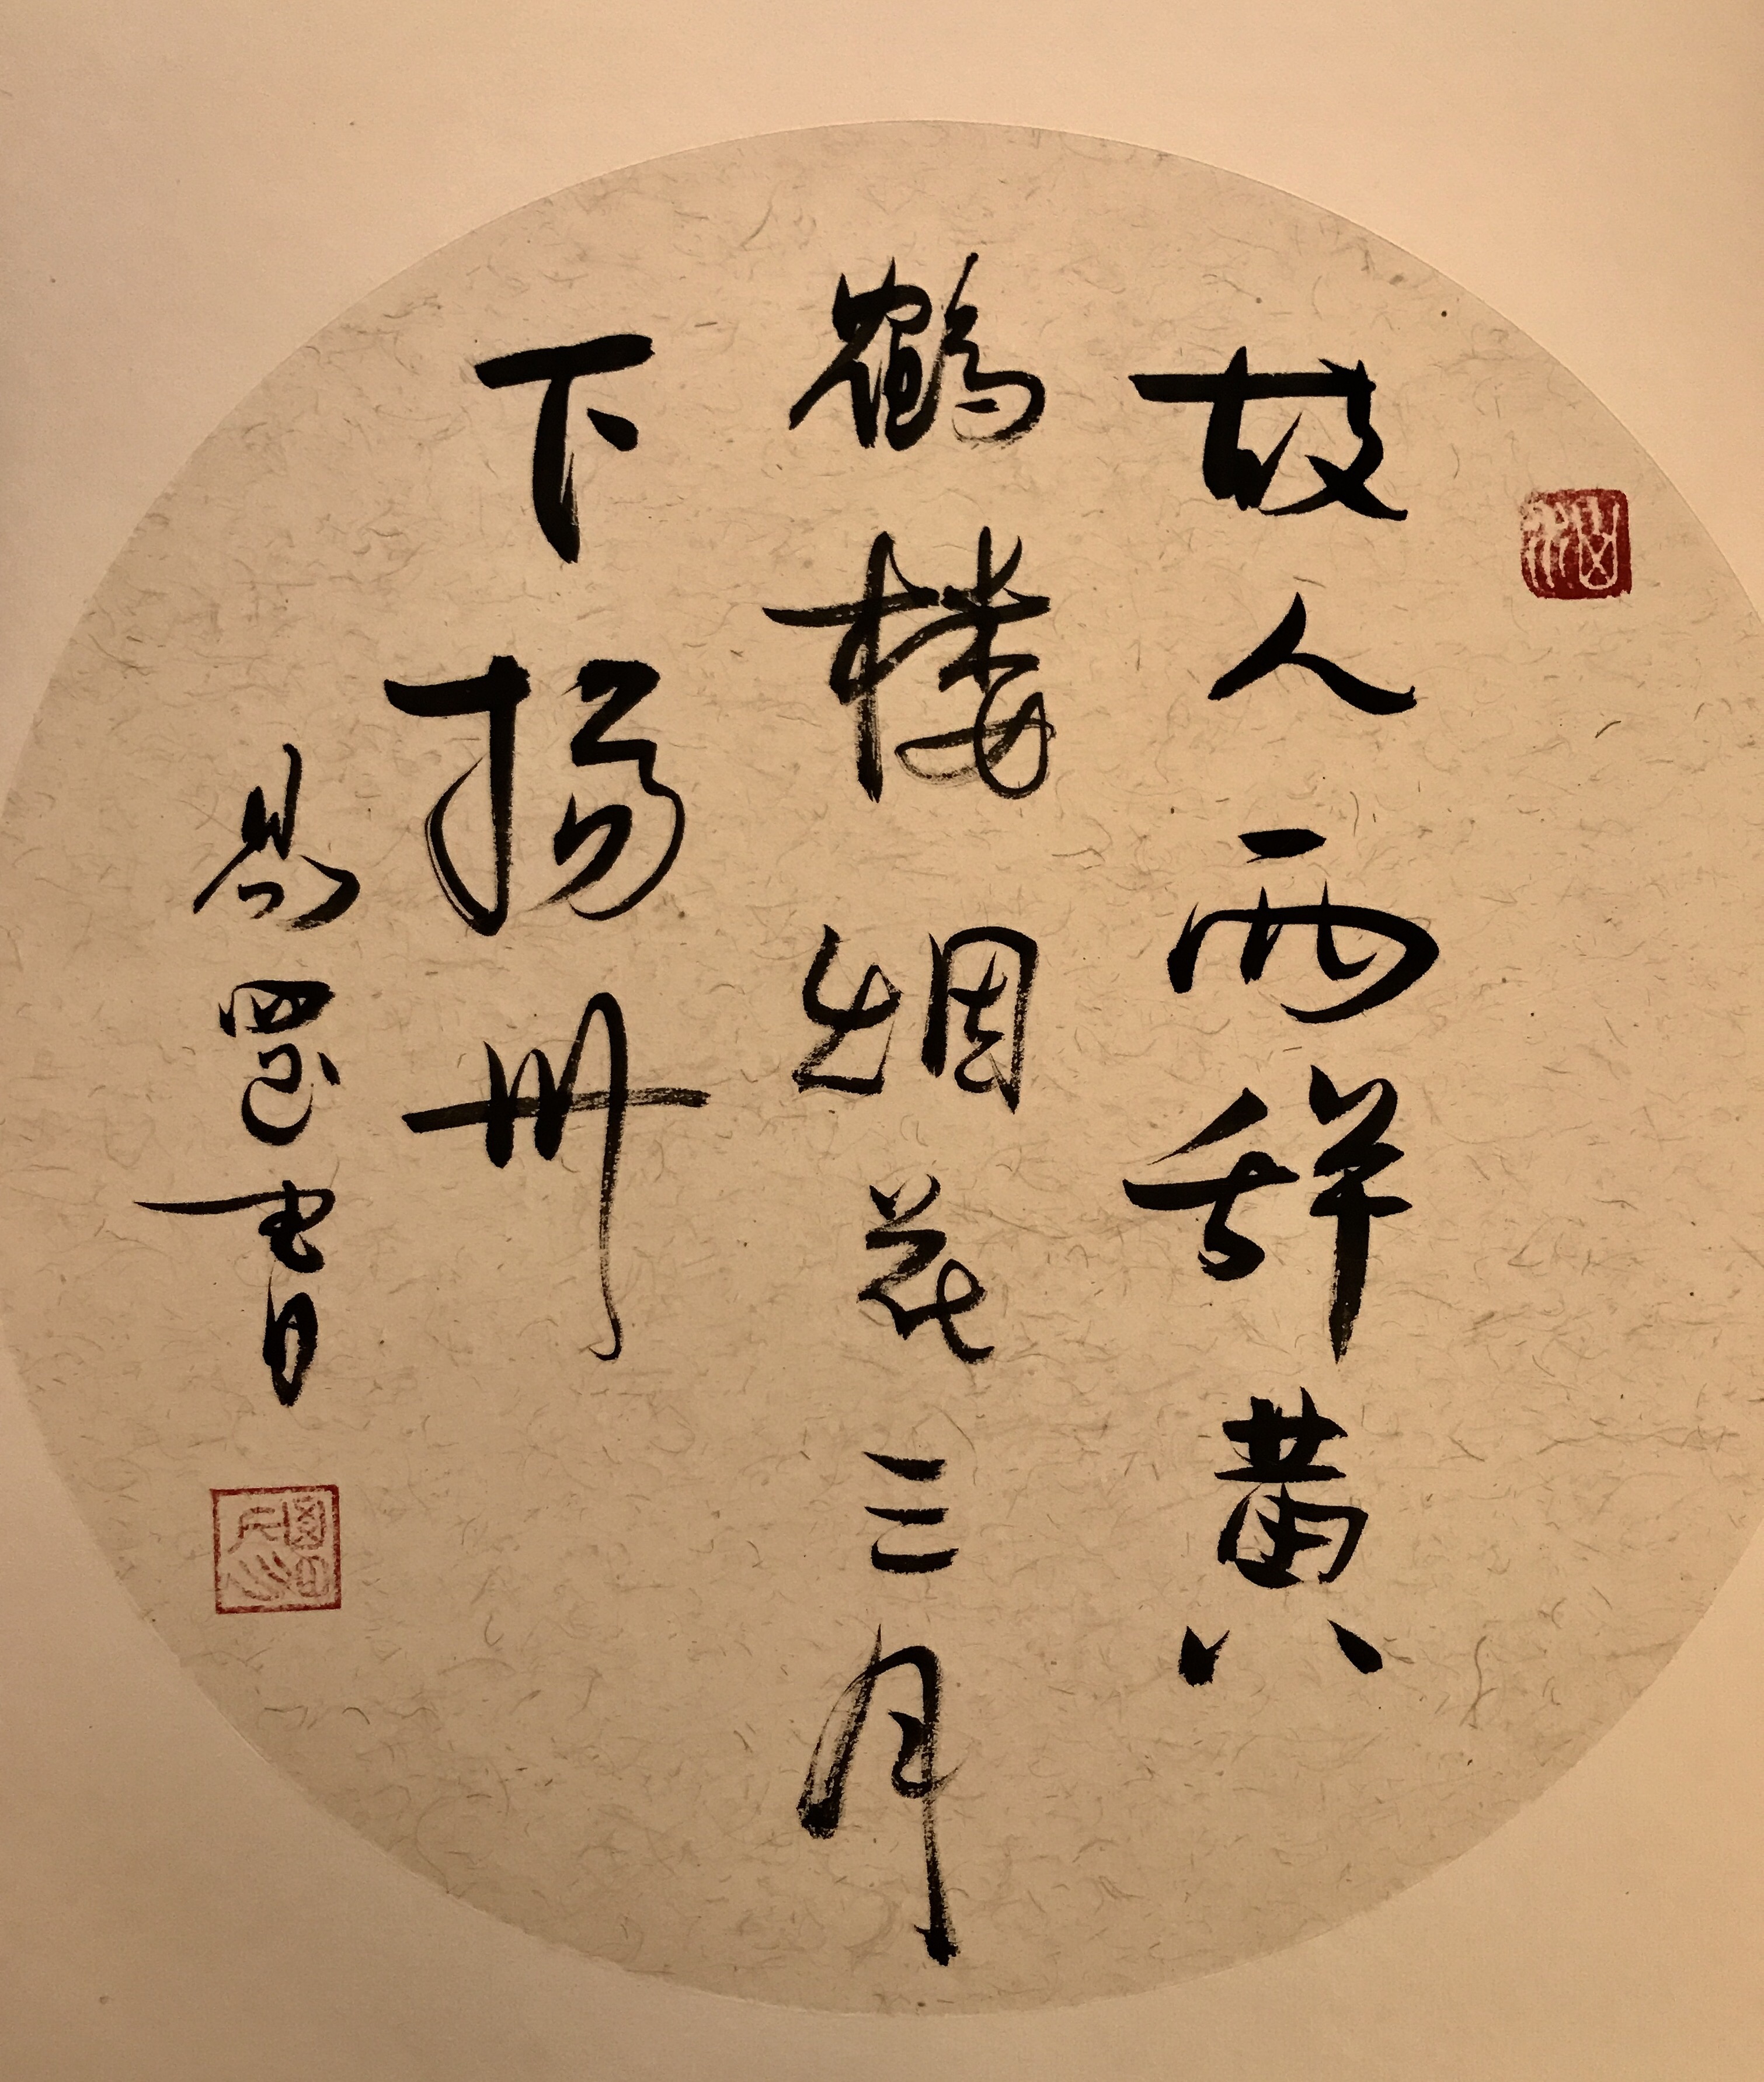 故人西辞黄
鹤楼烟花三月
下扬州
书